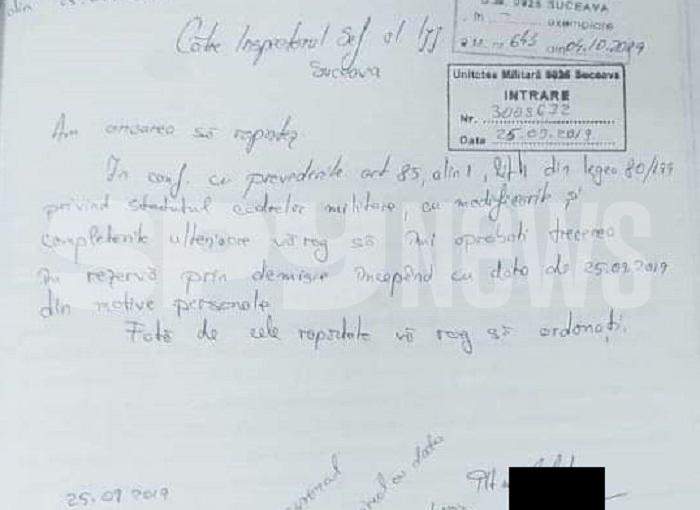 din
U.M. 0926 SUCEAVA
exemplare
643 din 04.10.2019
Către Inspectorul Șef al IJJ
Suceava
Unitatea Militară 0026 Suceava
INTRARE
Nr. 3008672
Data 25.09.2019
Am onoarea să raportez
În conf. cu prevederile art 85, alin 1, din legea 80/
privind statutul cadrelor militare, cu modificările și
completările ulterioare vă rog să îmi aprobați trecerea
în rezervă prin demisie începând cu data de 25.09.2019
din motive personale.
Față de cele raportate vă rog să ordonați.
SPYNEWS
data
25.09.2019